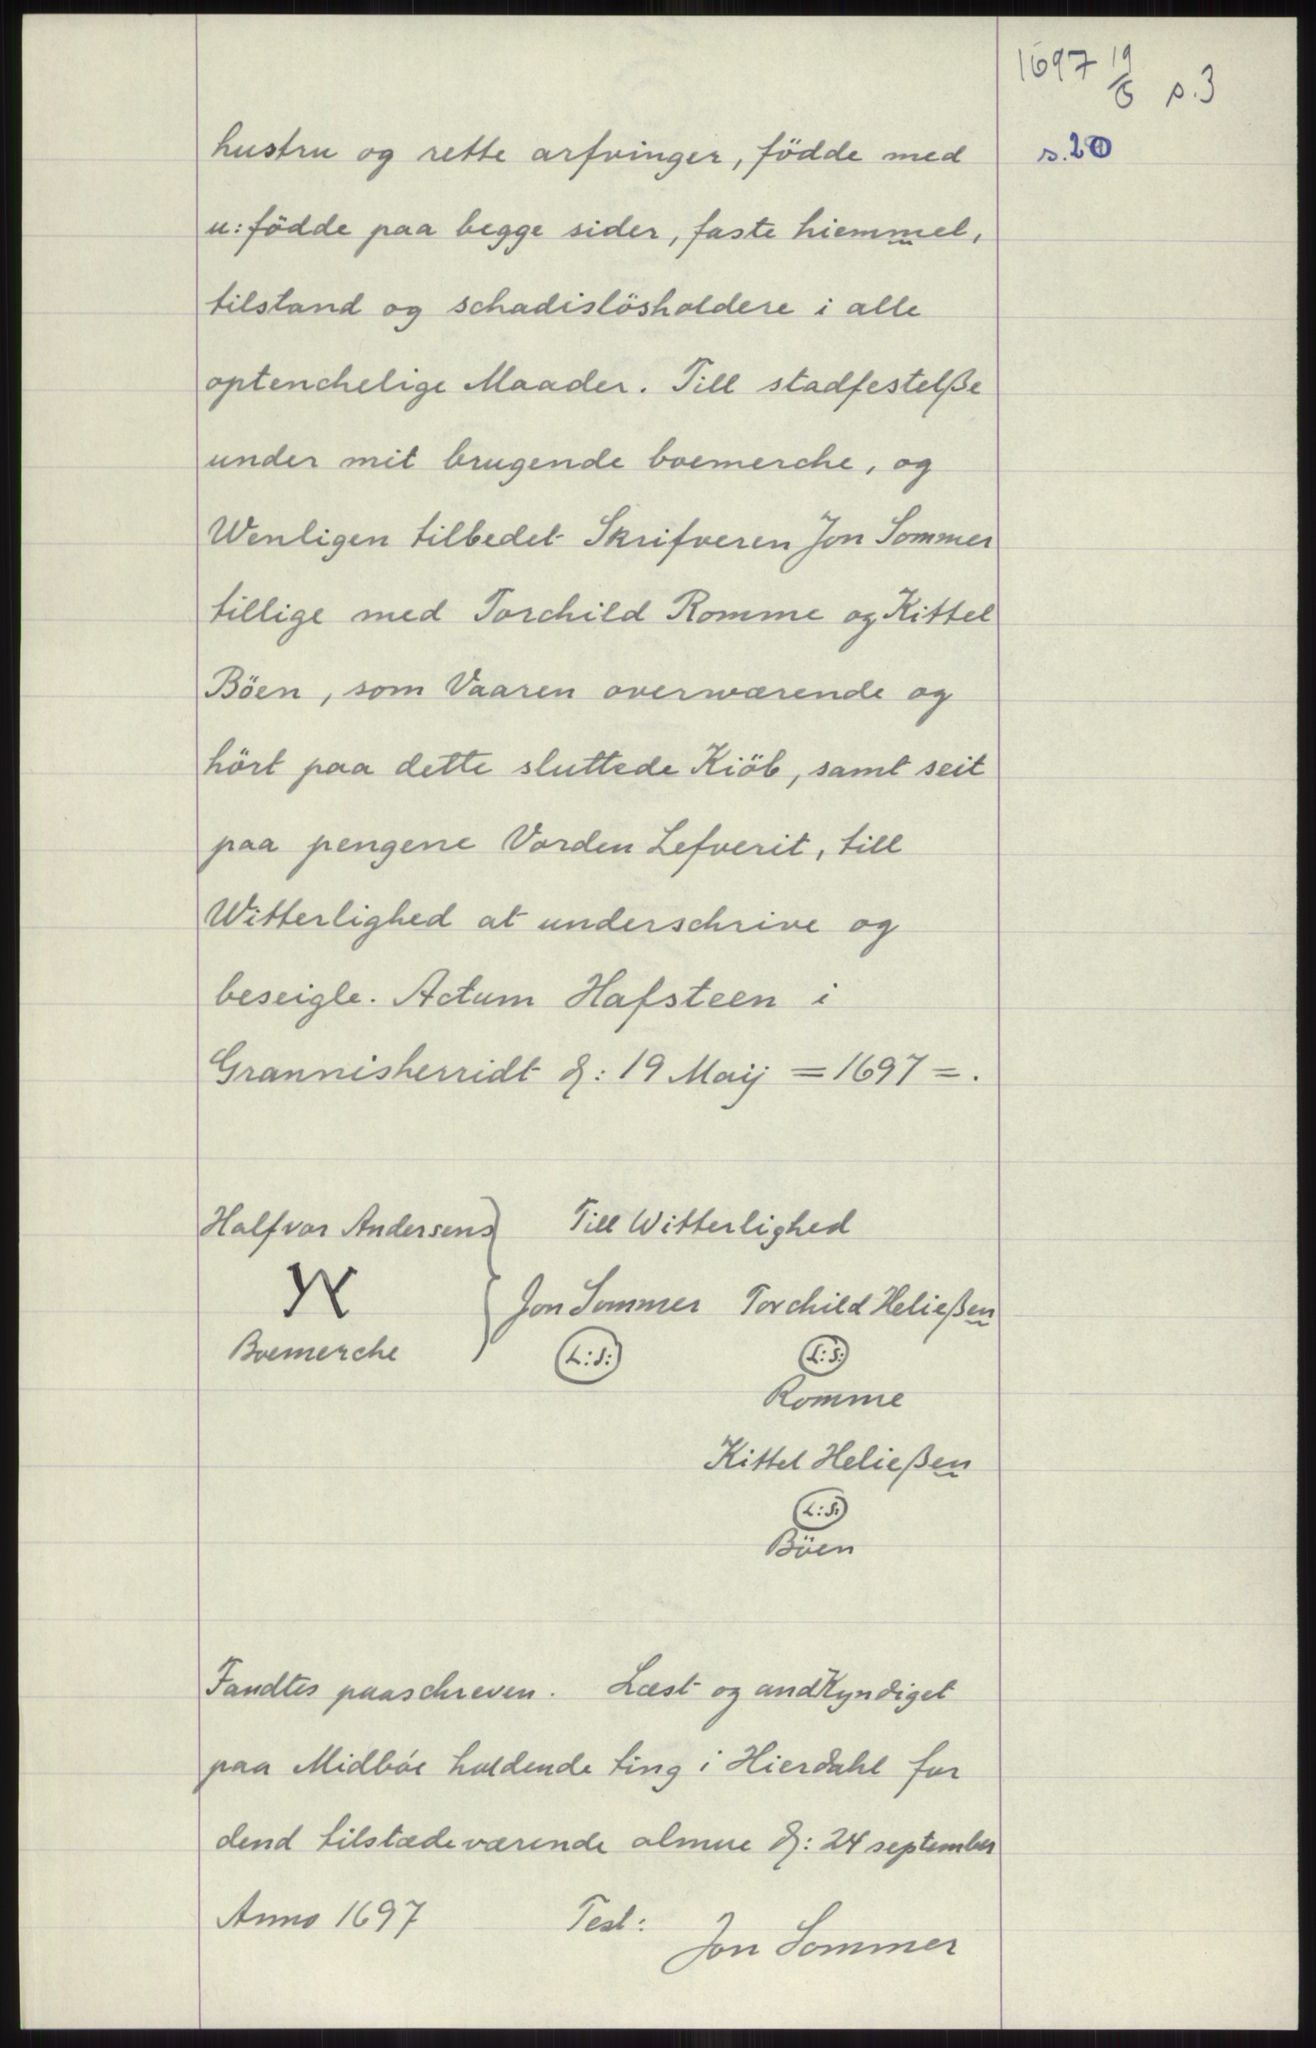 1697 19/5 s.3
s.20
hustru og rette arfvinger, födde med
u:födde paa begge sider, faste hiemmel,
tilstand og schadislösholdere i alle
optenchelige Maader. Till stadfestelße
under mit brugende boemerche, og
Wenligen tilbedet Skrifveren Jon Sommer
tillige med Torchild Romme og Kittel
Böen, som Vaaren overwærende og
hört paa dette sluttede Kiöb, samt seit
paa pengene Vorden Lefverit, till
Witterlighed at underschrive og
beseigle. Actum Hafsteen i
Grannisherridt d: 19 Maij =1697=.
Halfvor Andersens Till Witterlighed
Jon Sommer Torchild Heließen
Boemerche L:S: L:S:
Romme
Kittel Heließen
L:S:
Böen
Fandtes paaschreven. Læst og andKyndiget
paa Midböe holdende ting i Hierdahl for
dend tilstædeværende almue d: 24 september
Anno 1697 Test: Jon Sommer